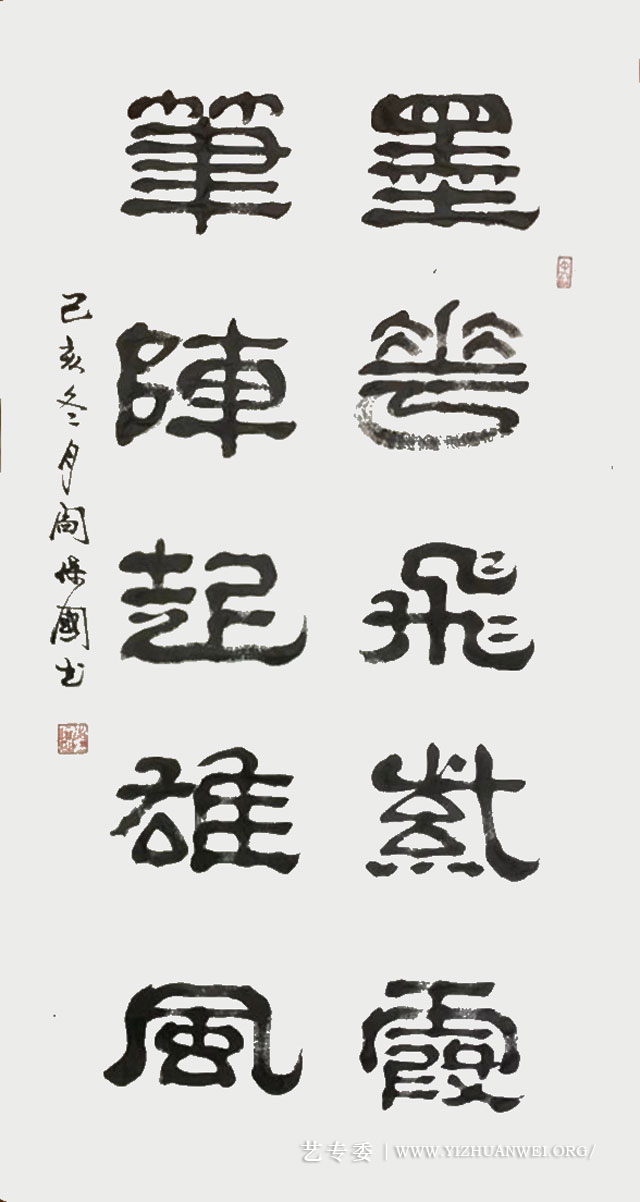 墨花飛紫霞
筆陣起雄風
己亥冬月閻保國书
艺专委 | WWW.YIZHUANWEI.ORG/